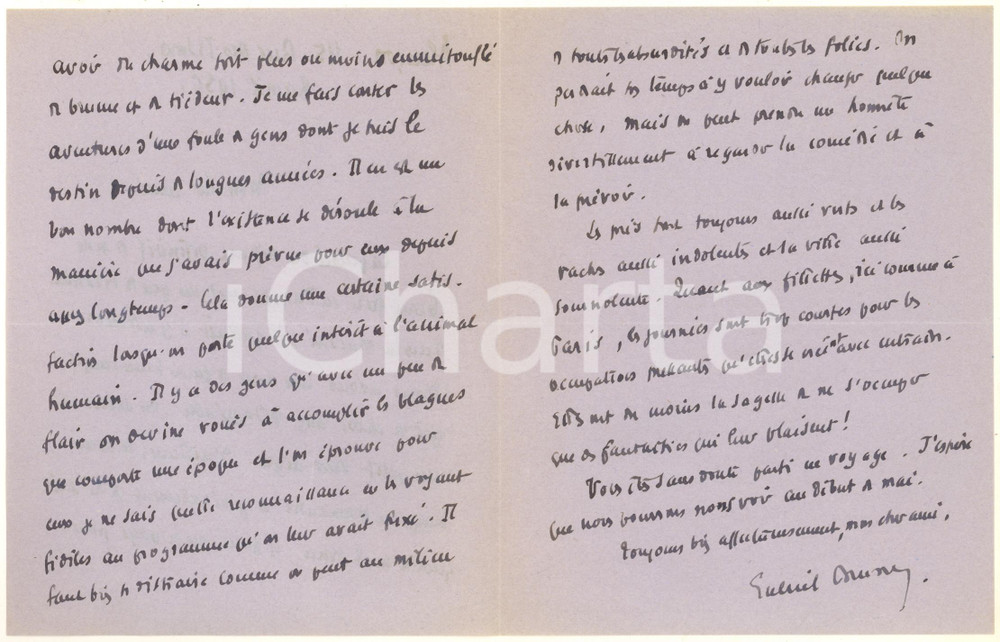 avoir du charme tout plus ou moins emmitouflé
de brume et de tiédeur. Je me fais conter les
aventures d'une foule de gens dont je suis le
destin depuis de longues années. Il en est un
bon nombre dont l'existence se déroule à la
manière que j'avais prévue pour eux depuis
assez longtemps - Cela donne une certaine satis-
faction lorsqu'on porte quelque intérêt à l'animal
humain. Il y a des gens qu'avec un peu de
flair on devine voués à accomplir les blagues
que comporte une époque et l'on éprouve pour
eux je ne sais quelle reconnaissance en les voyant
fidèles au programme qu'on leur avait fixé. Il
faut bien se distraire comme on peut au milieu
de toutes les absurdités et de toutes les folies. On
perdrait son temps à y vouloir changer quelque
chose, mais on peut prendre un honnête
divertissement à regarder la comédie et à
la prévoir.
Les prés sont toujours aussi verts et les
vaches aussi indolentes et la ville aussi
somnolente. Quant aux fillettes, ici comme à
Paris, les journées sont trop courtes pour les
occupations qu'elles avec entrain.
Elles ont du moins la sagesse de ne s'occuper
que des fantaisies qui leur plaisent!
Vous êtes sans doute parti en voyage. J'espère
que nous pourrons nous voir au début de mai.
Toujours bien affectueusement, mon cher ami,
iCharta